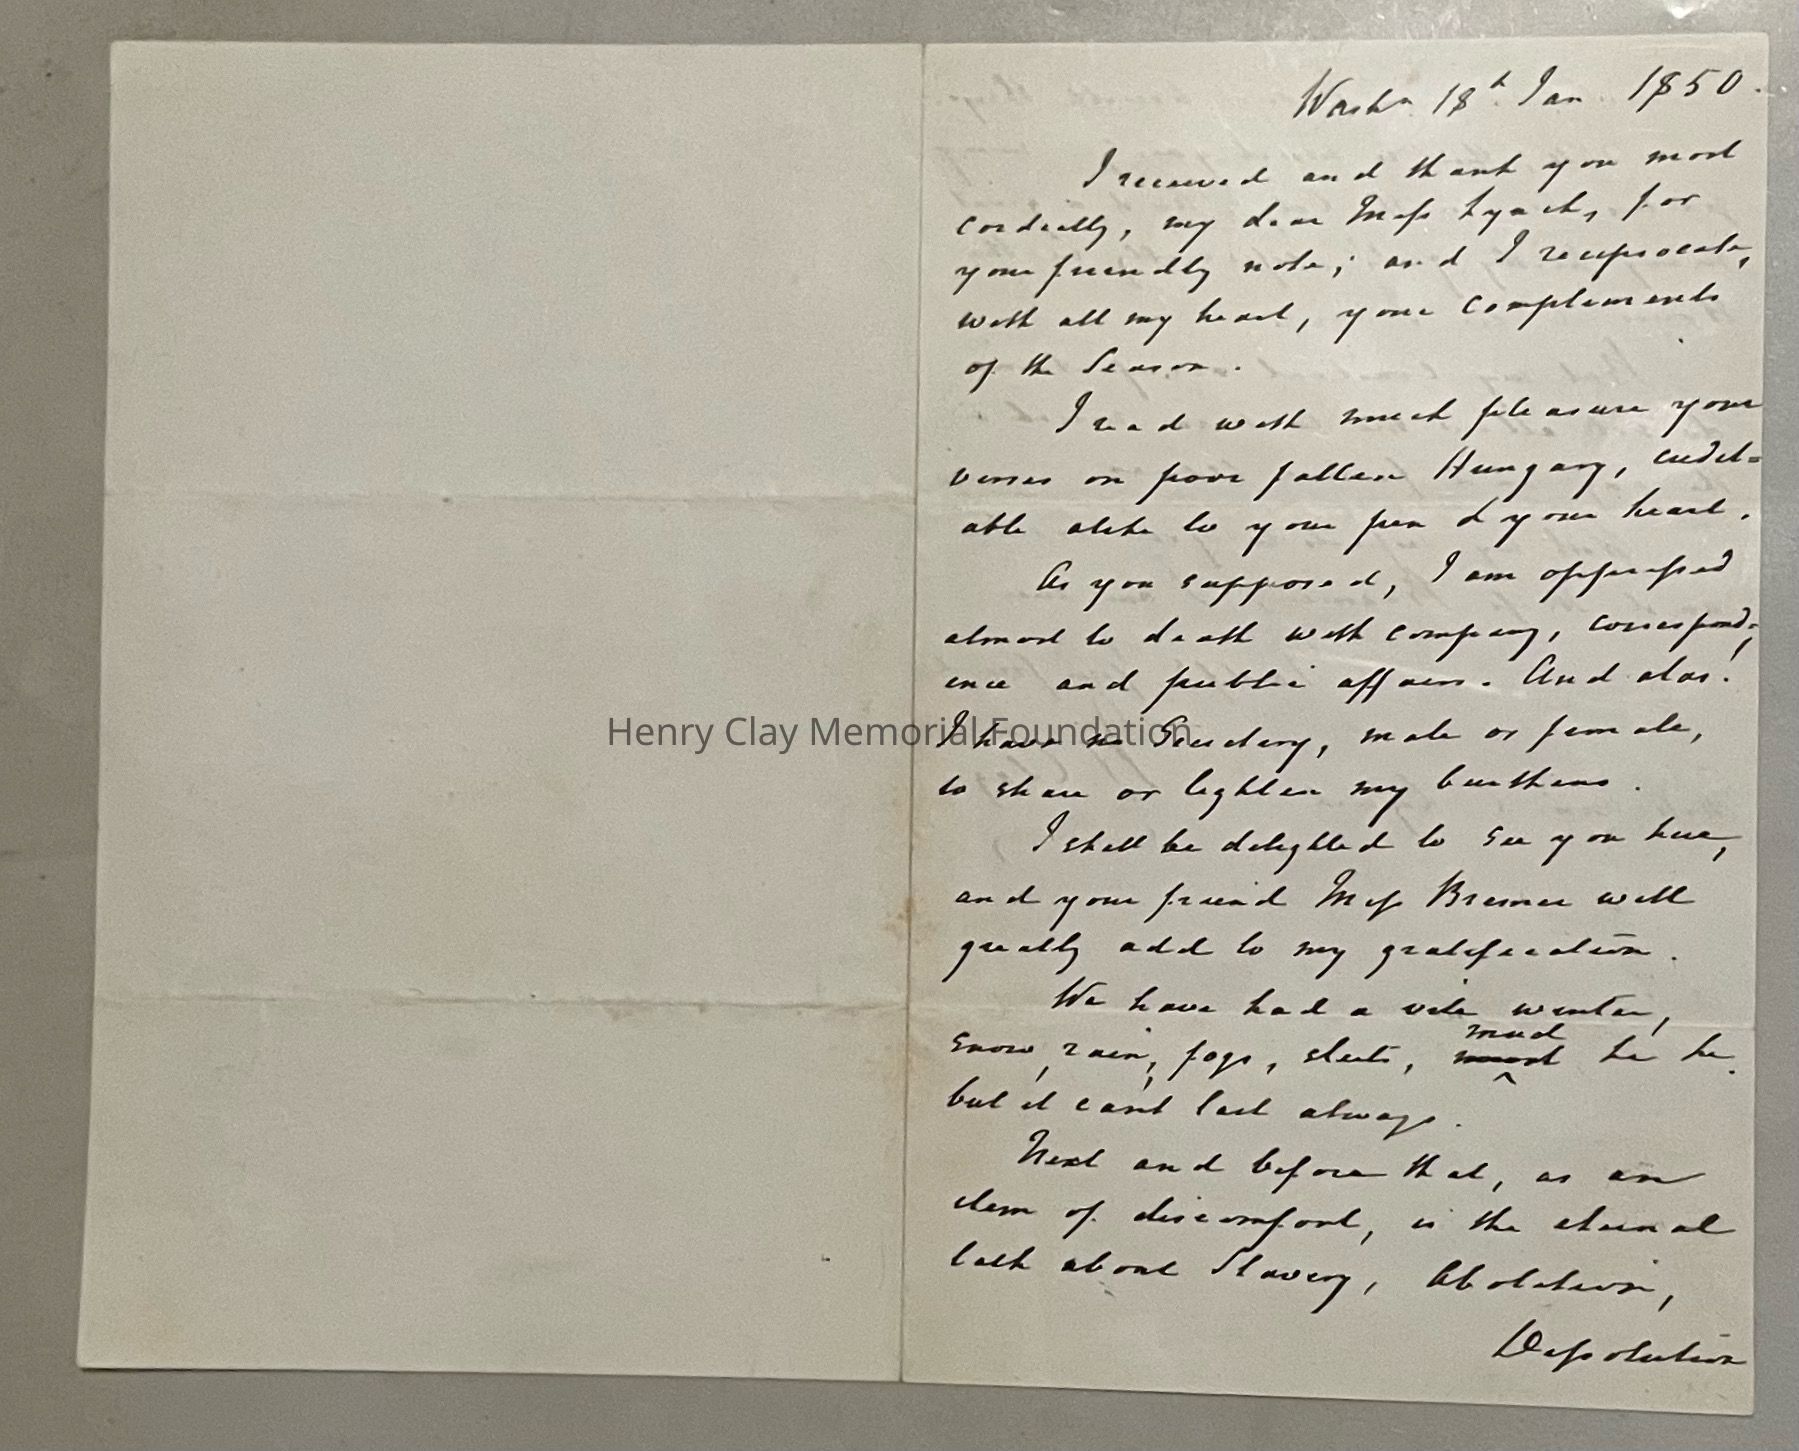 Washn 18h Jan 1850.
I received and thank you most
cordially, my dear Miss Lynch, for
your friendly note; and I reciprocate,
with all my heart, your compliments
of the Season.
I read with much pleasure your
verses on poor fallen Hungary, credit=
able alike to your pen & your heart.
As you supposed, I am oppressed
almost to death with company, correspond=
ence and public affairs. And alas!
I have no Secretary, male or female,
to share or lighten my burthens.
I shall be delighted to see you here,
and your friend Miss Bremer will
greatly add to my gratification.
We have had a vile winter,
mud
snow, rain, fogs, sleets, &c &c.
but it can't last always.
Next and before that, as an
item of discomfort, is the eternal
talk about Slavery, Abolition,
Dissolution
Henry Clay Memorial Foundation